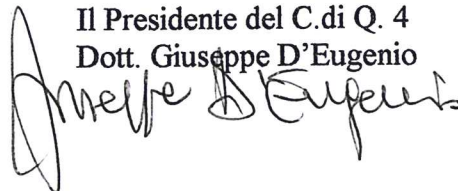 Il Presidente del C.di Q. 4
Dott. Giuseppe D’Eugenio
Giuseppe D'Eugenio